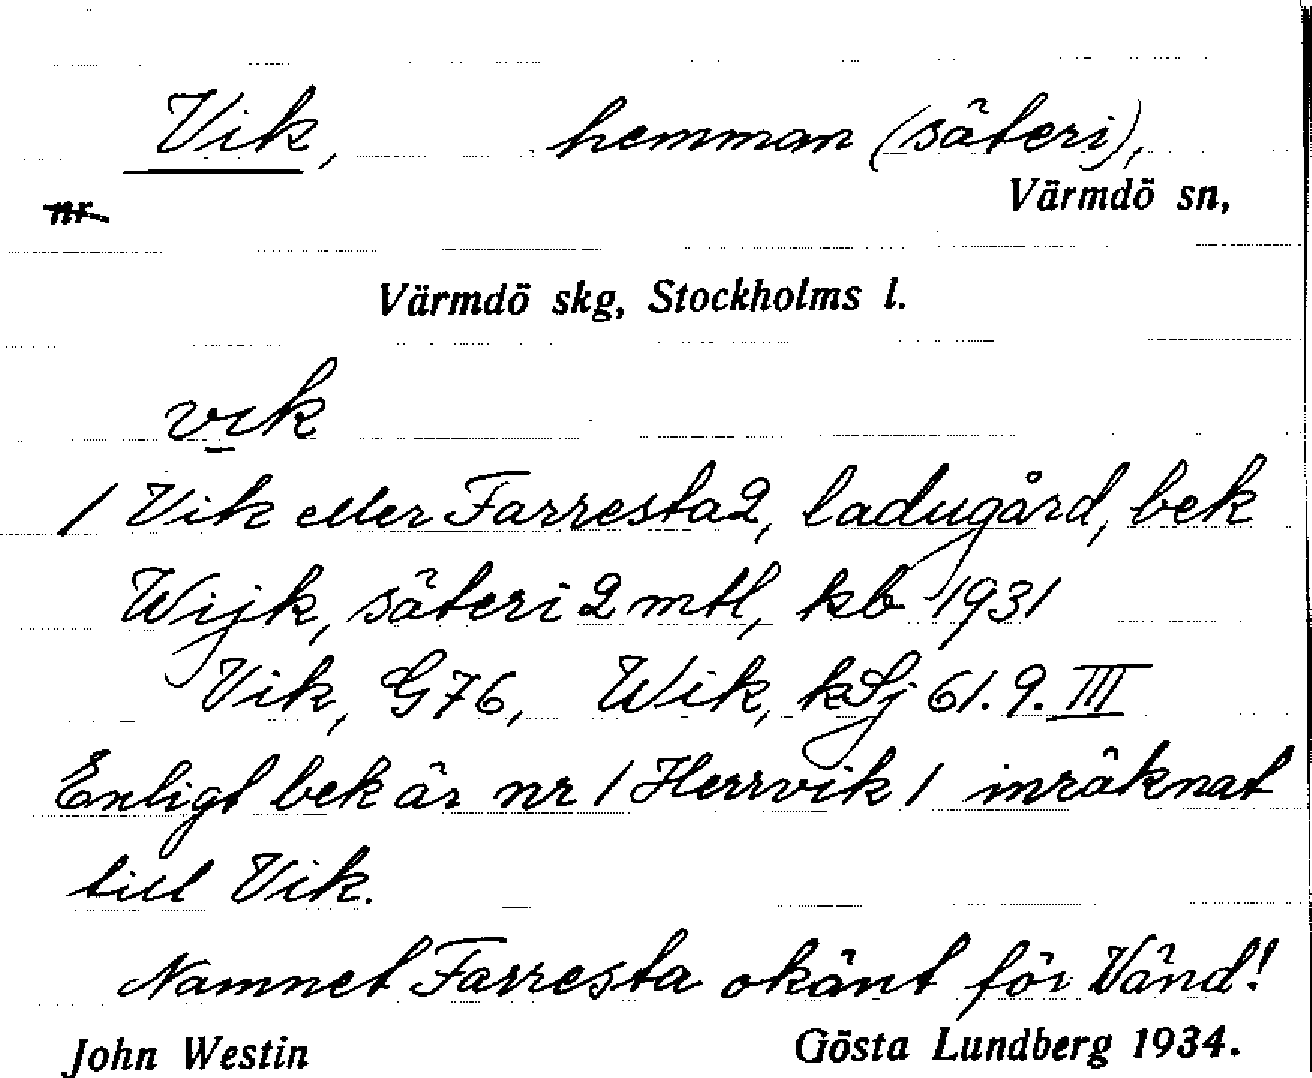 Vik, hemman (säteri),
nr
Värmdö sn,
Värmdö skg, Stockholms l.
vık
/ Vik eller Farresta 2, ladugård, bek
Wijk, säteri 2 mtl, kb 1931
Vik, G76, Wik, kSj 61.9.III
Enligt bek är nr 1 Herrvik 1 inräknat
till Vik.
Namnet Farresta okänt för Vänd!
John Westin Gösta Lundberg 1934.